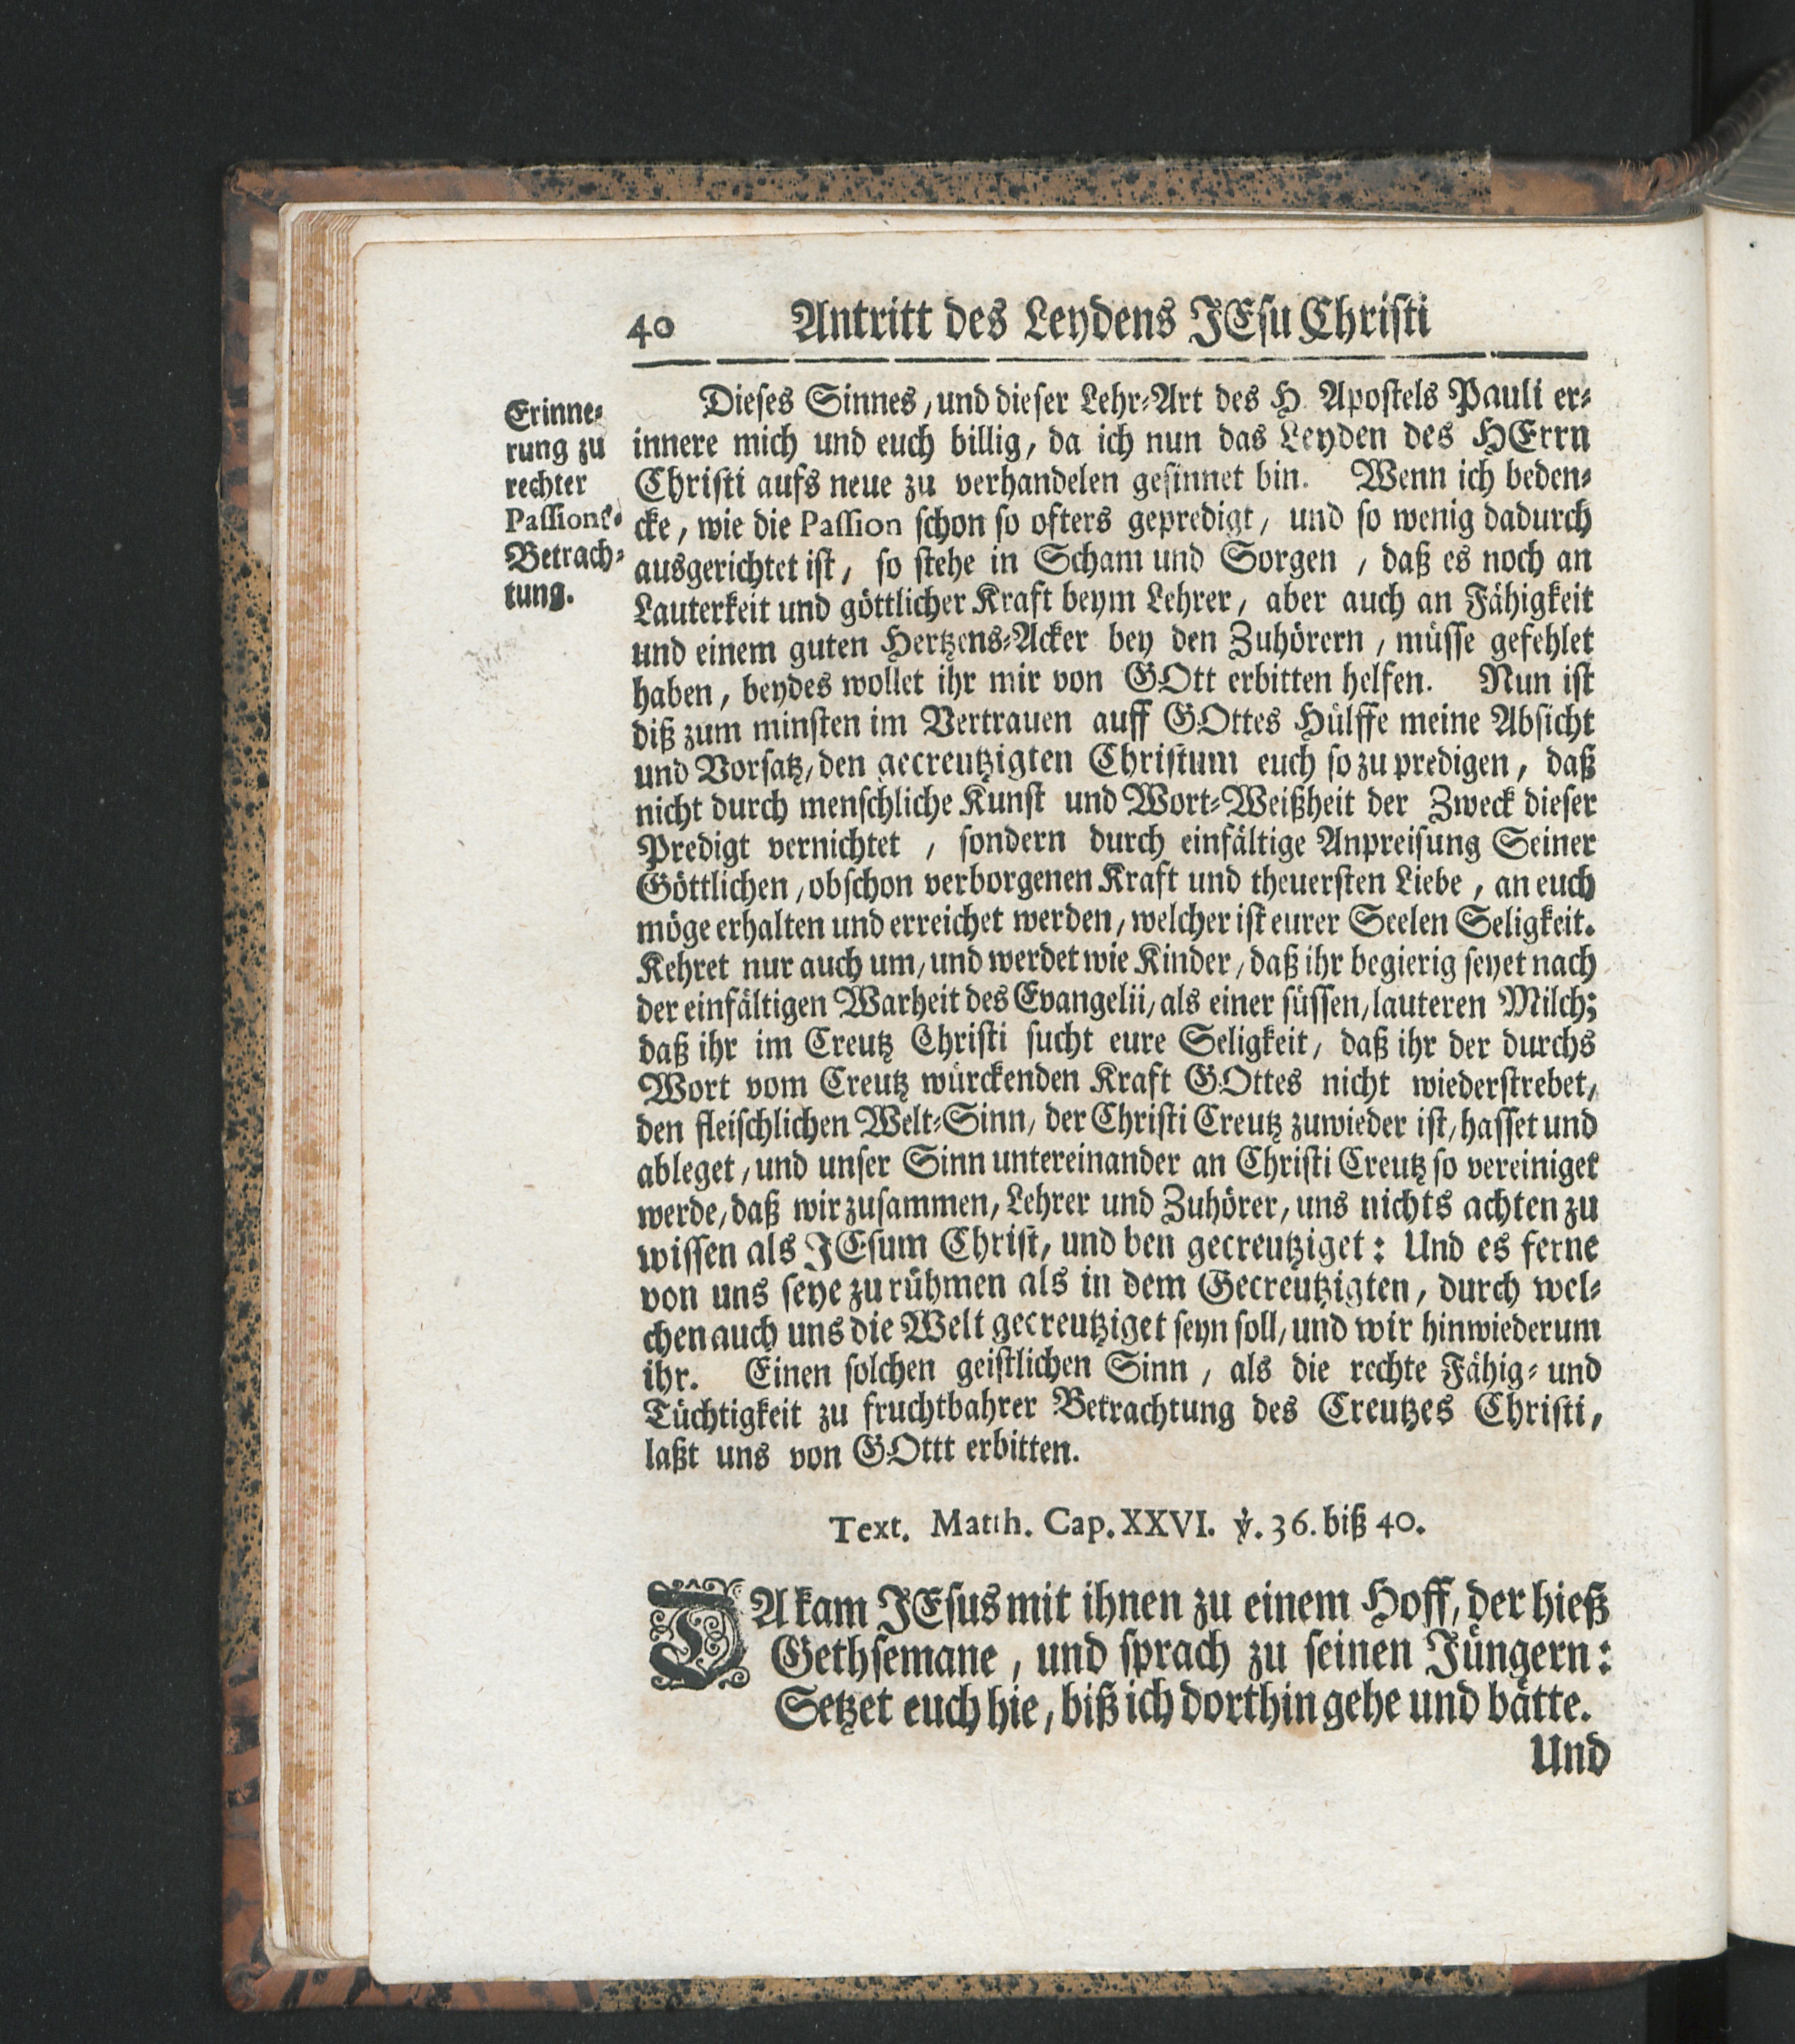 40 Antritt des Leydens JEsu Christi
Erinne-
rung zu
rechter
Passions-
Betrach-
tung.
Dieses Sinnes, und dieser Lehr-Art des H. Apostels Pauli er-
innere mich und euch billig, da ich nun das Leyden des HErrn
Christi aufs neue zu verhandelen gesinnet bin. Wenn ich beden-
cke, wie die Passion schon so ofters gepredigt, und so wenig dadurch
ausgerichtet ist, so stehe in Scham und Sorgen, daß es noch an
Lauterkeit und göttlicher Kraft beym Lehrer, aber auch an Fähigkeit
und einem guten Hertzens-Acker bey den Zuhörern, müsse gefehlet
haben, beydes wollet ihr mir von GOtt erbitten helfen. Nun ist
diß zum minsten im Vertrauen auff GOttes Hülffe meine Absicht
und Vorsatz, den gecreutzigten Christum euch so zu predigen, daß
nicht durch menschliche Kunst und Wort-Weißheit der Zweck dieser
Predigt vernichtet, sondern durch einfältige Anpreisung Seiner
Göttlichen, obschon verborgenen Kraft und theuersten Liebe, an euch
möge erhalten und erreichet werden, welcher ist eurer Seelen Seligkeit.
Kehret nur auch um, und werdet wie Kinder, daß ihr begierig seyet nach
der einfältigen Warheit des Evangelii, als einer süssen, lauteren Milch;
daß ihr im Creutz Christi sucht eure Seligkeit, daß ihr der durchs
Wort vom Creutz würckenden Kraft GOttes nicht wiederstrebet,
den fleischlichen Welt-Sinn, der Christi Creutz zuwieder ist, hasset und
ableget, und unser Sinn untereinander an Christi Creutz so vereiniget
werde, daß wir zusammen, Lehrer und Zuhörer, uns nichts achten zu
wissen als JEsum Christ, und ben gecreutziget: Und es ferne
von uns seye zu rühmen als in dem Gecreutzigten, durch wel-
chen auch uns die Welt gecreutziget seyn soll, und wir hinwiederum
ihr. Einen solchen geistlichen Sinn, als die rechte Fähig- und
Tüchtigkeit zu fruchtbahrer Betrachtung des Creutzes Christi,
laßt uns von GOttt erbitten.
Text. Matth. Cap. XXVI. ℣. 36. biß 40.
DA kam JEsus mit ihnen zu einem Hoff, der hieß
Gethsemane, und sprach zu seinen Jüngern:
Setzet euch hie, biß ich dorthin gehe und bätte.
Und